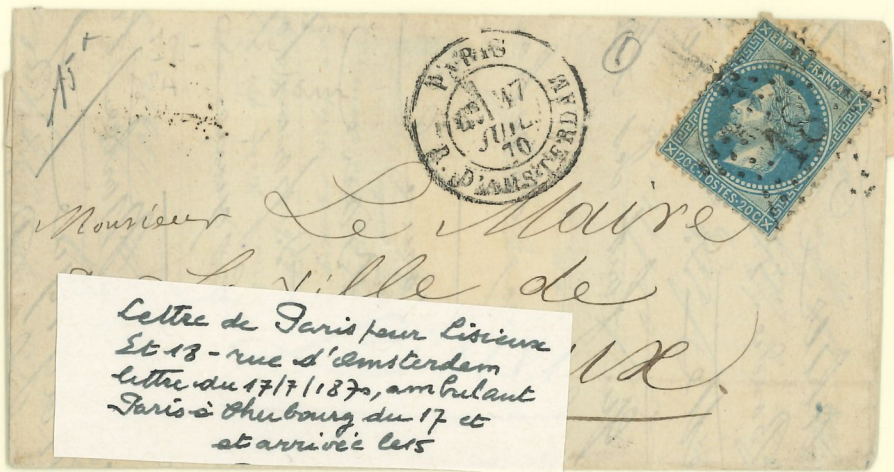 15+
PARIS
R. D'AMSTERDAM
17
JUIL.
70
1
EMPIRE FRANCAIS
20C POSTES 20C
18
Monsieur Le Maire
La Ville de
ux
Lettre de Paris pour Lisieux
Et 18 - rue d'Amsterdam
lettre du 17/7/1870, ambulant
Paris à Cherbourg du 17 et
et arrivée le 15